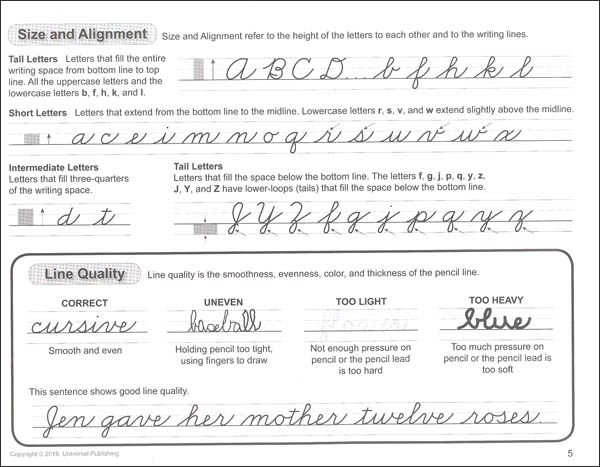 Size and Alignment
Size and Alignment refer to the height of the letters to each other and to the writing lines.
Tall Letters Letters that fill the entire writing space from bottom line to top line. All the uppercase letters and the lowercase letters b, f, h, k, and l.
A B C D... b f h k l
Short Letters Letters that extend from the bottom line to the midline. Lowercase letters r, s, v, and w extend slightly above the midline.
a c e i m n o q r s u v w x
Intermediate Letters
Letters that fill three-quarters of the writing space.
d t
Tail Letters
Letters that fill the space below the bottom line. The letters f, g, j, p, q, y, z, J, Y, and Z have lower-loops (tails) that fill the space below the bottom line.
J Y Z f g j p q y z
Line Quality
Line quality is the smoothness, evenness, color, and thickness of the pencil line.
CORRECT
cursive
Smooth and even
UNEVEN
baseball
Holding pencil too tight, using fingers to draw
TOO LIGHT
flowers
Not enough pressure on pencil or the pencil lead is too hard
TOO HEAVY
blue
Too much pressure on pencil or the pencil lead is too soft
This sentence shows good line quality.
Jen gave her mother twelve roses.
Copyright © 2016, Universal Publishing
5